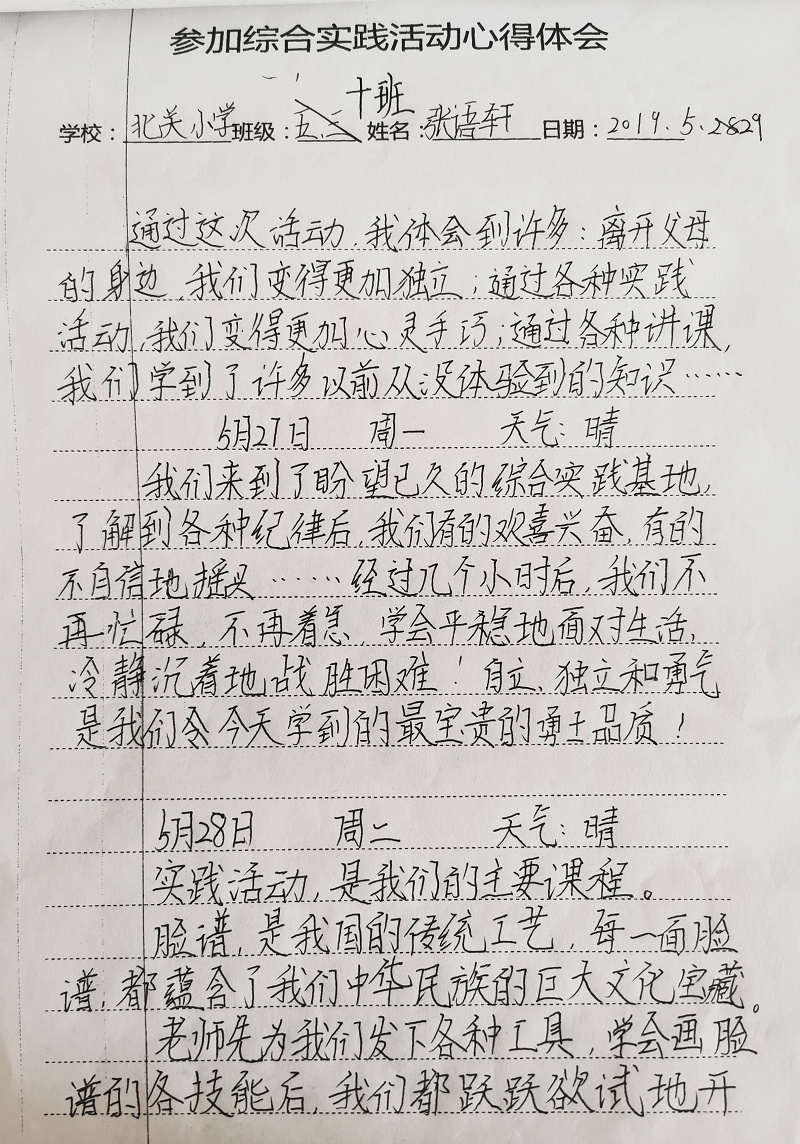 参加综合实践活动心得体会
十班
学校：北关小学班级：五、三姓名：张语轩 日期：2019.5.2829
通过这次活动，我体会到许多：离开父母
的身边，我们变得更加独立；通过各种实践
活动，我们变得更加心灵手巧；通过各种讲课，
我们学到了许多以前从没体验到的知识……
5月27日 周一 天气：晴
我们来到了盼望已久的综合实践基地，
了解到各种纪律后，我们有的欢喜兴奋，有的
不自信地摇头……经过几个小时后，我们不
再忙碌，不再着急，学会平稳地面对生活，
冷静沉着地战胜困难！自立、独立和勇气
是我们令今天学到的最宝贵的勇士品质！
5月28日 周二 天气：晴
实践活动，是我们的主要课程。
脸谱，是我国的传统工艺，每一面脸
谱，都蕴含了我们中华民族的巨大文化宝藏。
老师先为我们发下各种工具，学会画脸
谱的各技能后，我们都跃跃欲试地开